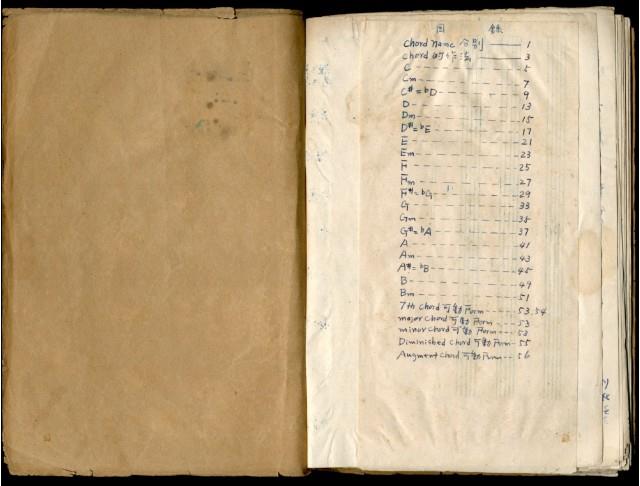 目 錄
Chord Name 分別 —— 1
Chord 的作法 —— 3
C 5
Cm 7
C#=bD 9
D 13
Dm 15
D#=bE 17
E 21
Em 23
F 25
Fm 27
F#=bG 29
G 33
Gm 38
G#=bA 37
A 41
Am 43
A#=bB 45
B 49
Bm 51
7th Chord 可動 Form 53,54
major Chord 可動 Form 53
minor Chord 可動 Form 53
Diminished Chord 可動 Form 55
Augment Chord 可動 Form 56